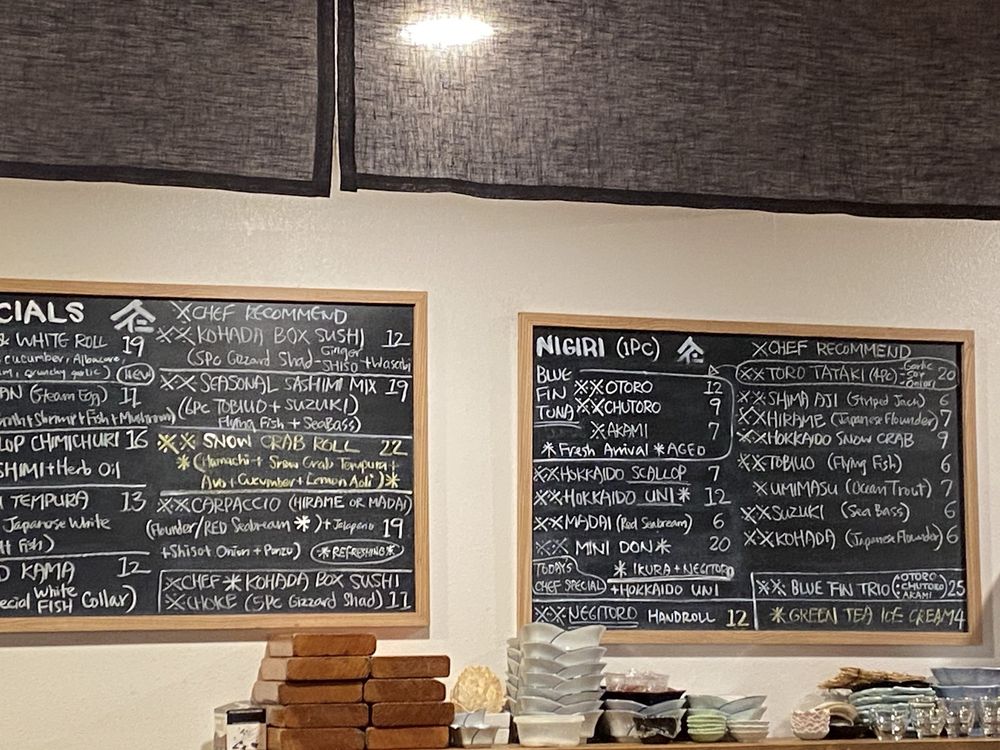 CIALS
& WHITE ROLL 19
cucumber, Albacore,
crunchy garlic) NEW
(Steam Egg) 11
+ Shrimp + Fish + Mushroom)
CHIMICHURI 16
SHIMI + Herb Oil
TEMPURA 13
Japanese White
Fish)
KAMA 12
White
FISH Collar)
X CHEF RECOMMEND
XX KOHADA BOX SUSHI 12
(5pc Gizzard Shad - Ginger SHISO + Wasabi
XX SEASONAL SASHIMI MIX 19
(6pc TOBIUO + SUZUKI)
Flying Fish + Sea Bass)
XX SNOW CRAB ROLL 22
* (Hamachi + Snow Crab Tempura +
Avo + Cucumber + Lemon Aoli) *
XX CARPACCIO (HIRAME OR MADAI)
(Flounder/RED Seabream *) + Jalapeno 19
+ Shiso + Onion + Ponzu) * REFRESHING *
X CHEF * KOHADA BOX SUSHI
X CHOICE (5pc Gizzard Shad) 11
NIGIRI (1PC)
BLUE FIN TUNA
XX OTORO 12
XX CHUTORO 9
X AKAMI 7
* Fresh Arrival * AGED
XX HOKKAIDO SCALLOP 7
XX HOKKAIDO UNI * 12
XX MADAI (Red Seabream) 6
XX MINI DON * 20
TODAYS * IKURA + NEGITORO
CHEF SPECIAL + HOKKAIDO UNI
XX NEGITORO HANDROLL 12
X CHEF RECOMMEND
XX TORO TATAKI (4PC) - Garlic - Soy - Onion 20
XX SHIMA AJI (Striped Jack) 6
XX HIRAME (Japanese Flounder) 7
XX HOKKAIDO SNOW CRAB 9
XX TOBIUO (Flying Fish) 6
X UMIMASU (Ocean Trout) 7
XX SUZUKI (Sea Bass) 6
XX KOHADA (Japanese Flounder) 6
XX BLUE FIN TRIO (OTORO CHUTORO AKAMI) 25
* GREEN TEA ICE CREAM 4